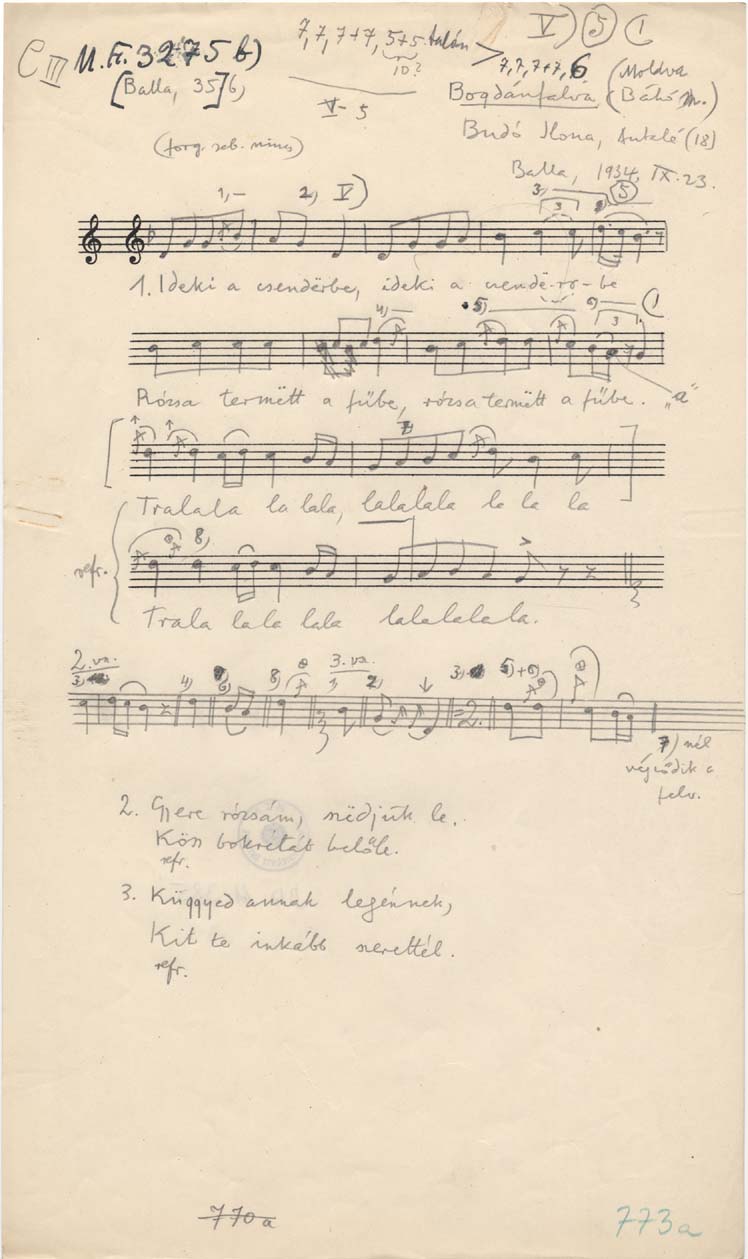 7, 7, 7+7, 5+5 talán
10?
V) 5 1
C III M. F. 3275 b)
[Balla, 35] b)
V - 5
> 7, 7, 7+7, 6
Bogdánfalva (Moldva
Bákó m.)
(forg. seb. nincs)
Budó Ilona, Antalé (18)
Balla, 1934. IX. 23.
1, — 2, V) 3, 3 5
1. Ideki a csendërbe, ideki a csendë-rö-be
4) 5) 6) 3 1
Rózsa termëtt a fűbe, rózsa termëtt a fűbe. „a"
Tralala la lala, lalalala la la la
8,
refr.
Trala la la lala lalalalala.
2. va. 3. va.
3) 4) 6) 8) 1, 2, 3) =2. 5)+6)
7) nél
végződik a
felv.
2. Gyere rózsám, szëdjük le,
Köss bokrétát belőle.
refr.
3. Küggyed annak legénnek,
Kit te inkább szerettél.
refr.
770a
773a